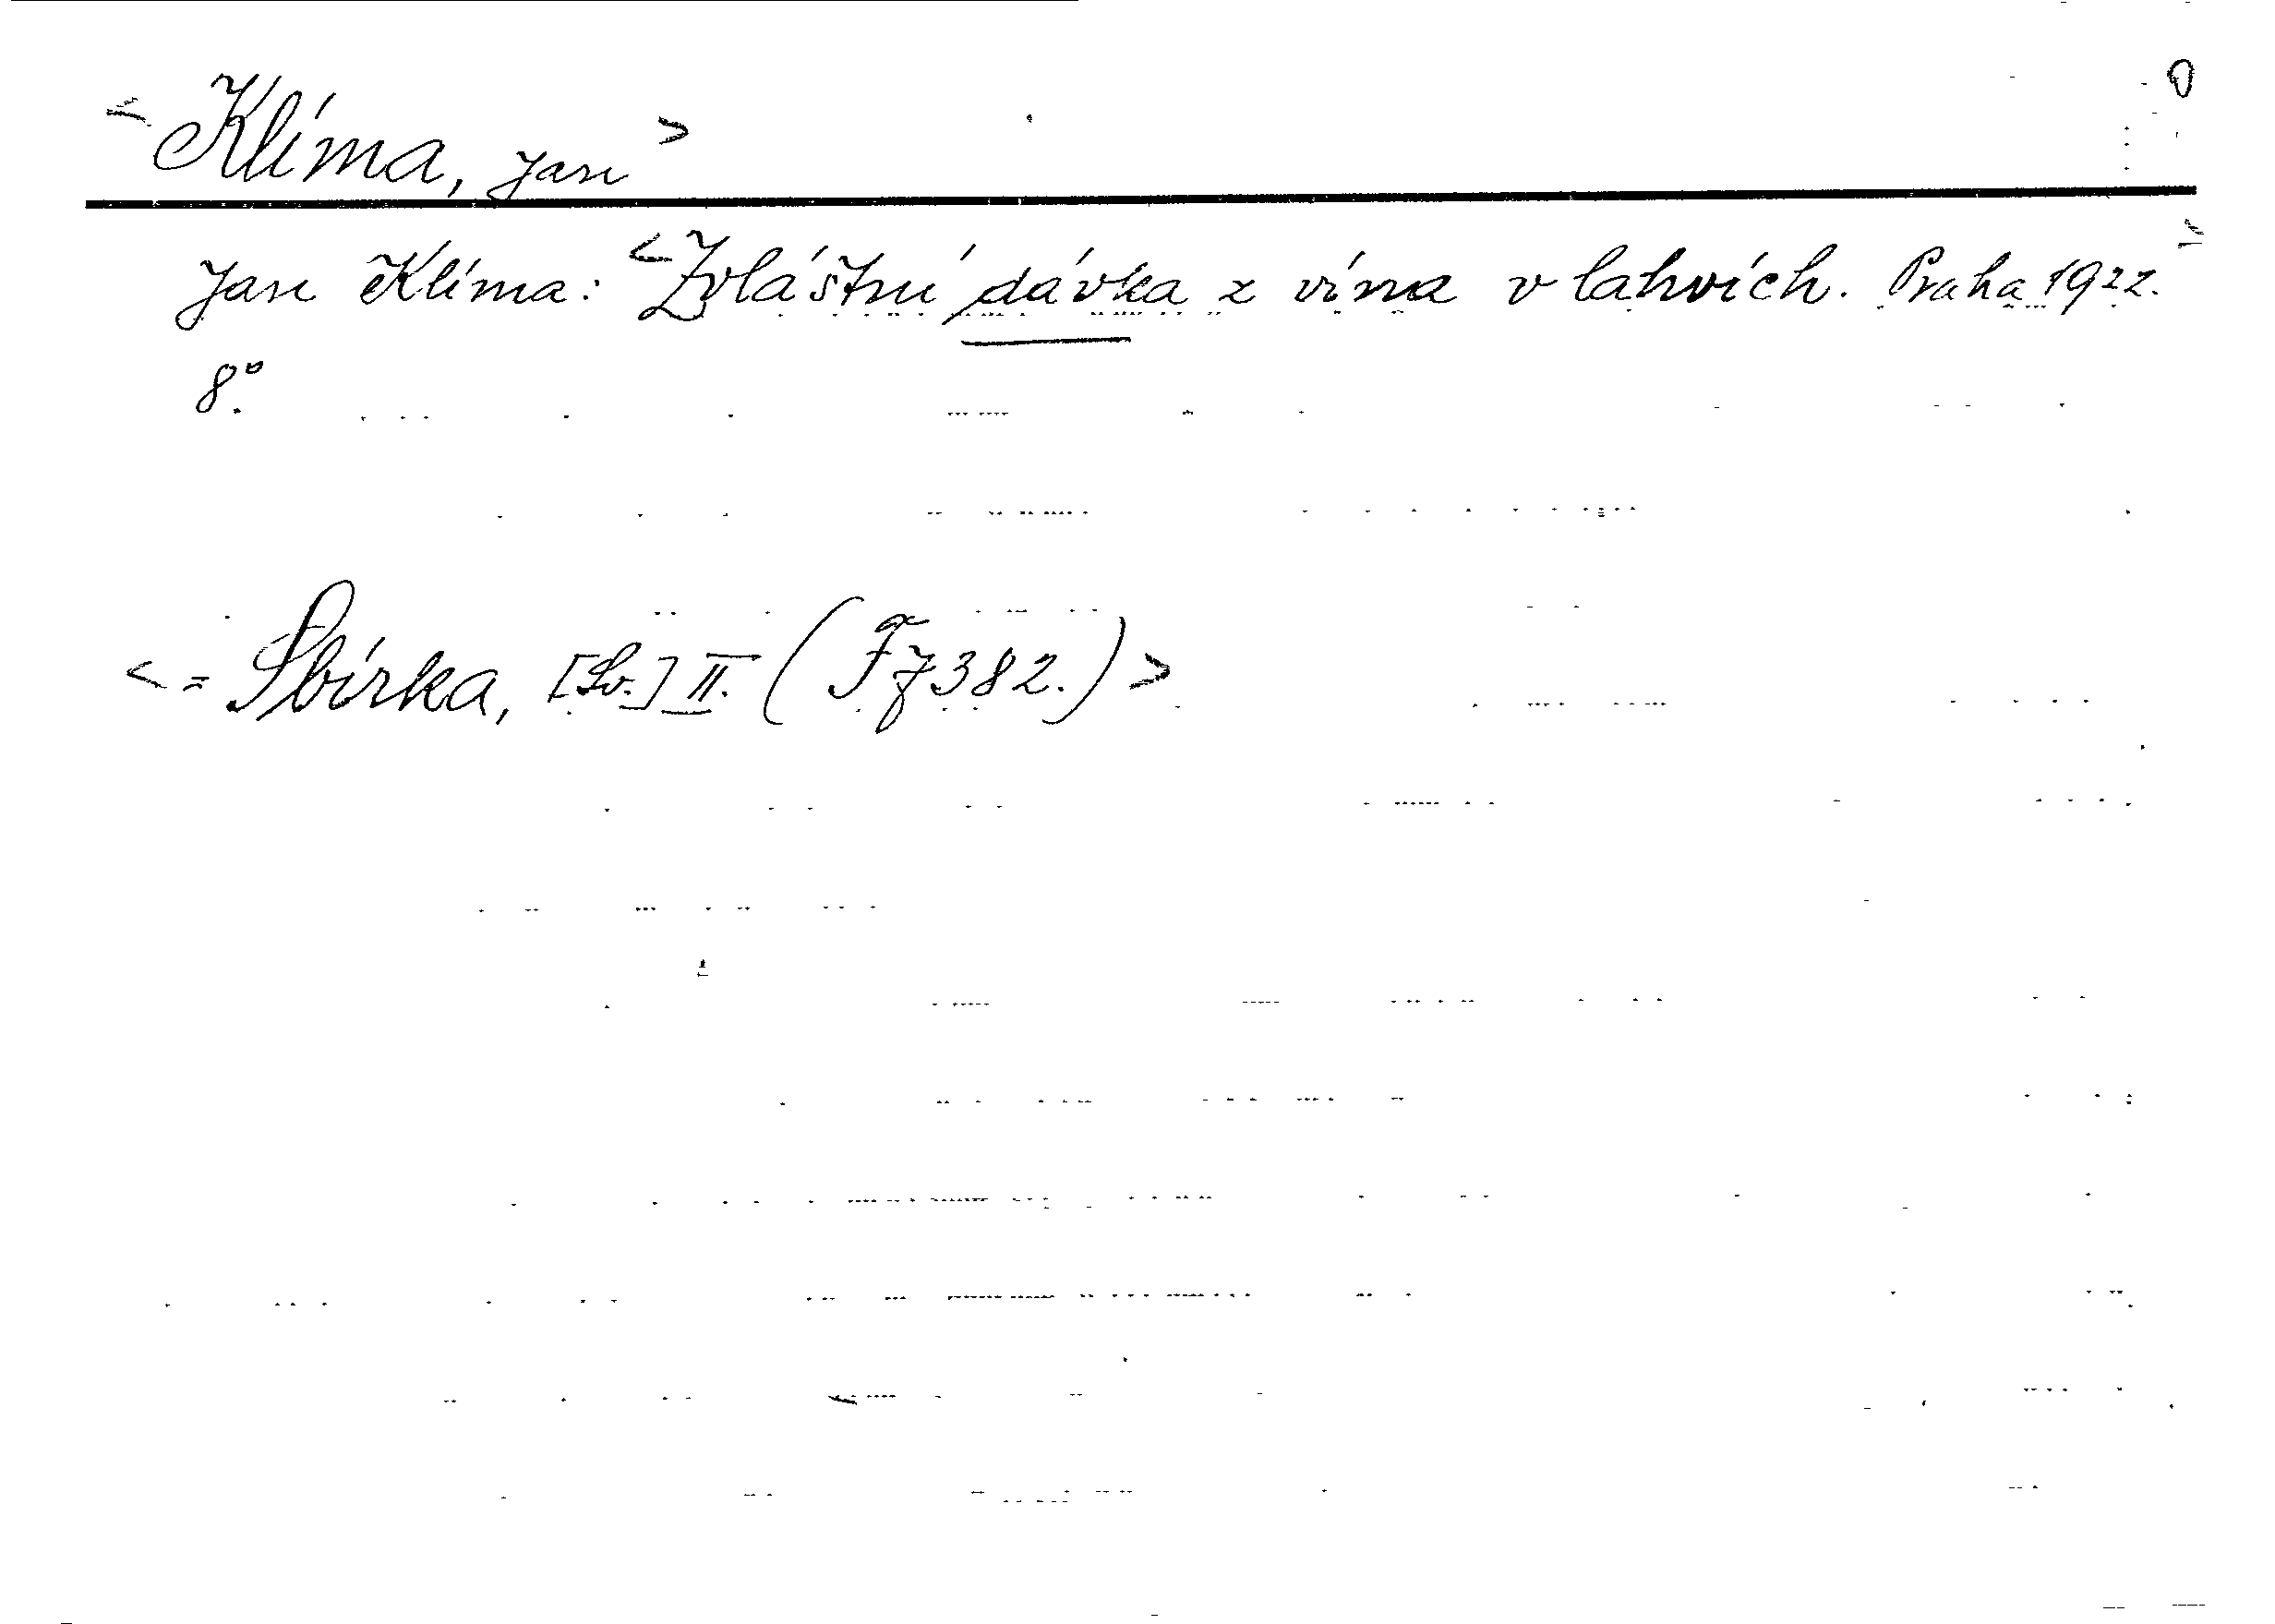 <Klíma, Jan>
Jan Klíma: <Zvláštní dávka z vína v lahvích. Praha 1922.>
8°.
<= Sbírka, [Sv.] II. (F 7382.)>